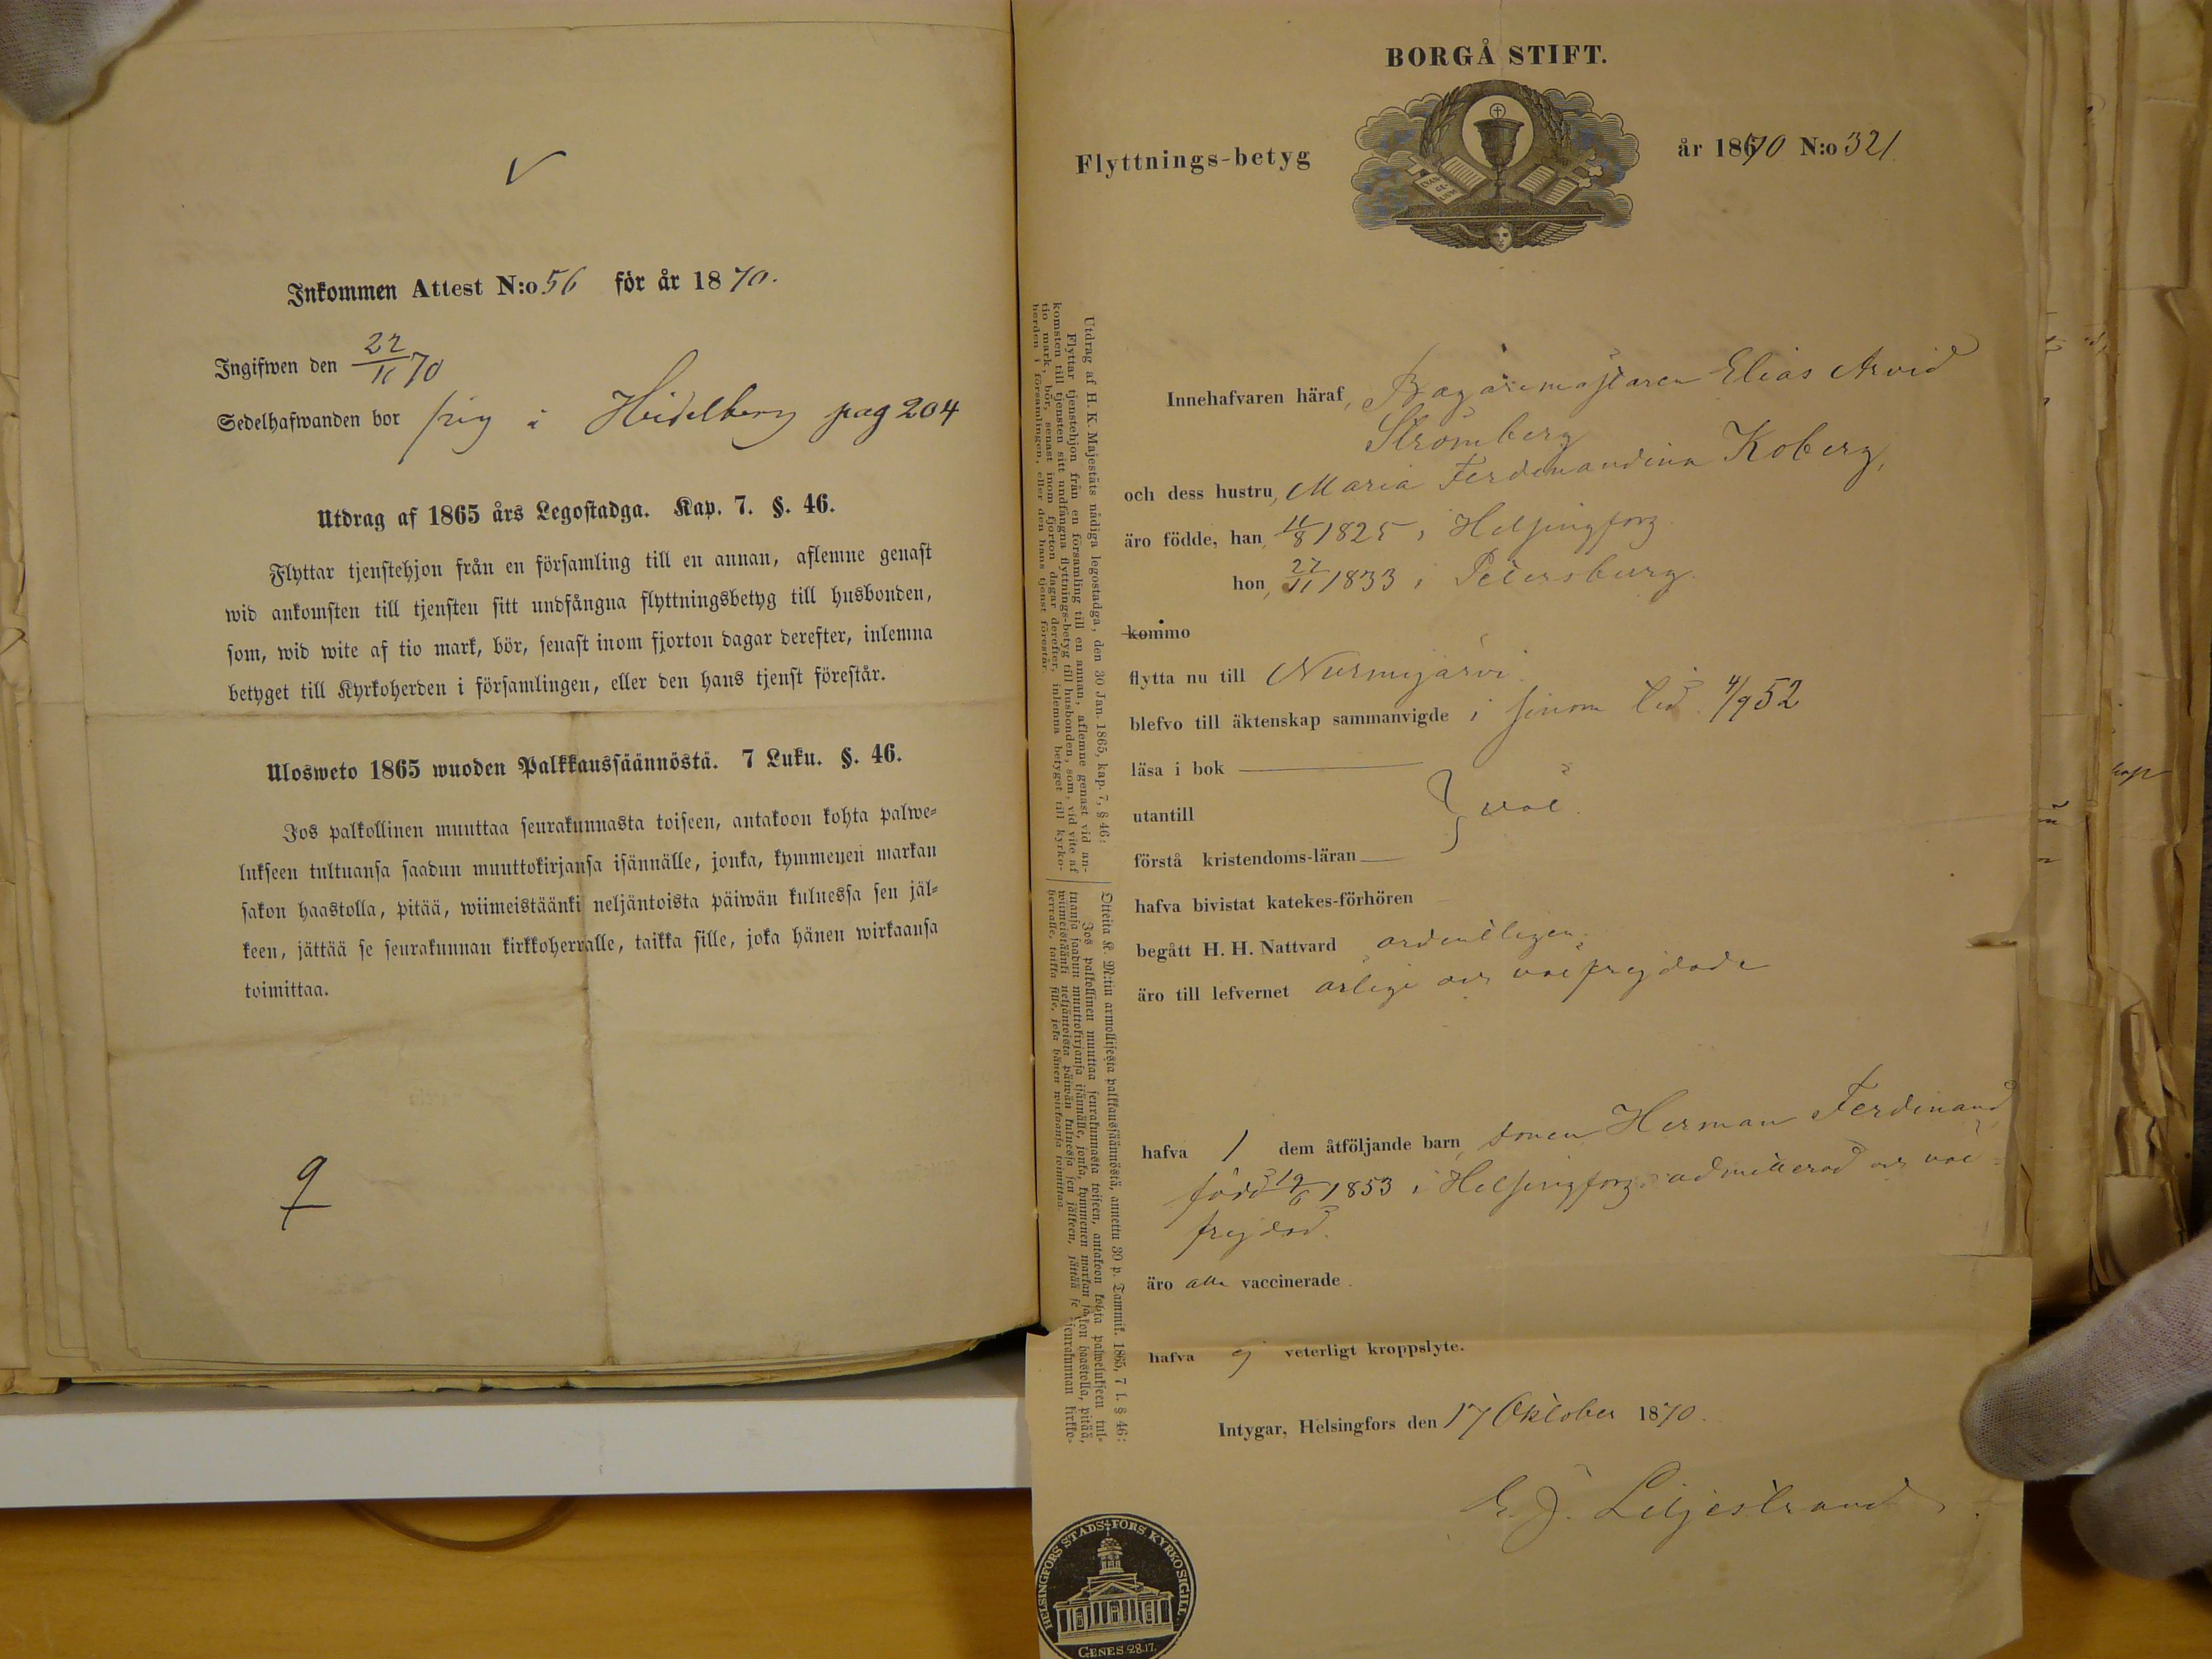 V
Inkommen Attest N:o 56 för år 1870.
Ingifwen den 22/11 70
Sedelhafwanden bor sig i Heidelberg pag 204
Utdrag af 1865 års Legostadga. Kap. 7. §. 46.
Flyttar tjenstehjon från en församling till en annan, aflemne genast
wid ankomsten till tjensten sitt undfångna flyttningsbetyg till husbonden,
som, wid wite af tio mark, bör, senast inom fjorton dagar derefter, inlemna
betyget till Kyrkoherden i församlingen, eller den hans tjenst förestår.
Ulosweto 1865 wuoden Palkkaussäännöstä. 7 Luku. §. 46.
Jos palkollinen muuttaa seurakunnasta toiseen, antakoon kohta palwe-
lukseen tultuansa saadun muuttokirjansa isännälle, jonka, kymmenen markan
sakon haastolla, pitää, wiimeistäänki neljäntoista päiwän kuluessa sen jäl-
keen, jättää se seurakunnan kirkkoherralle, taikka sille, joka hänen wirkaansa
toimittaa.
BORGÅ STIFT.
Flyttnings-betyg
EVAN-
GE-
LIUM
år 1870 N:o 321.
Utdrag af H. K. Majestäts nådiga legostadga, den 30 Jan. 1865, kap. 7, § 46:
Flyttar tjenstehjon från en församling till en annan, aflemne genast vid an-
komsten till tjensten sitt undfångna flyttnings-betyg till husbonden, som, vid vite af
tio mark, bör, senast inom fjorton dagar derefter, inlemna betyget till kyrko-
herden i församlingen, eller den hans tjenst förestår.
Otteita K. M:tin armollisesta palkkaussäännöstä, annettu 30 p. Tammik. 1865, 7 l. § 46:
Jos palkollinen muuttaa seurakunnasta toiseen, antakoon kohta palwelukseen tul-
tuansa saadun muuttokirjansa isännälle, jonka, kymmenen markan sakon haastolla, pitää,
wiimeistäänki neljäntoista päiwän kuluessa sen jälkeen, jättää se seurakunnan kirkko-
herralle, taikka sille, joka hänen wirkaansa toimittaa.
Innehafvaren häraf, Bagaremästaren Elias Arvid
Strömberg
och dess hustru, Maria Ferdinandina Koberg,
äro födde, han 11/8 1825 i Helsingfors
hon, 27/11 1833 i Petersburg.
kommo
flytta nu till Nurmijärvi.
blefvo till äktenskap sammanvigde i sinom tid 4/9 52
läsa i bok
utantill } väl.
förstå kristendoms-läran
hafva bivistat katekes-förhören
begått H. H. Nattvard ordentligen;
äro till lefvernet ärlige och välfrejdade
hafva 1 dem åtföljande barn, sonen Herman Ferdinand,
född 19/6 1853 i Helsingfors, admitterad och väl-
frejdad.
äro alla vaccinerade.
hafva ej veterligt kroppslyte.
Intygar, Helsingfors den 17 Oktober 1870.
E. J. Liljestrand.
HELSINGFORS STADS-FÖRS. KYRKOSIGILL.
GENES 28.17.